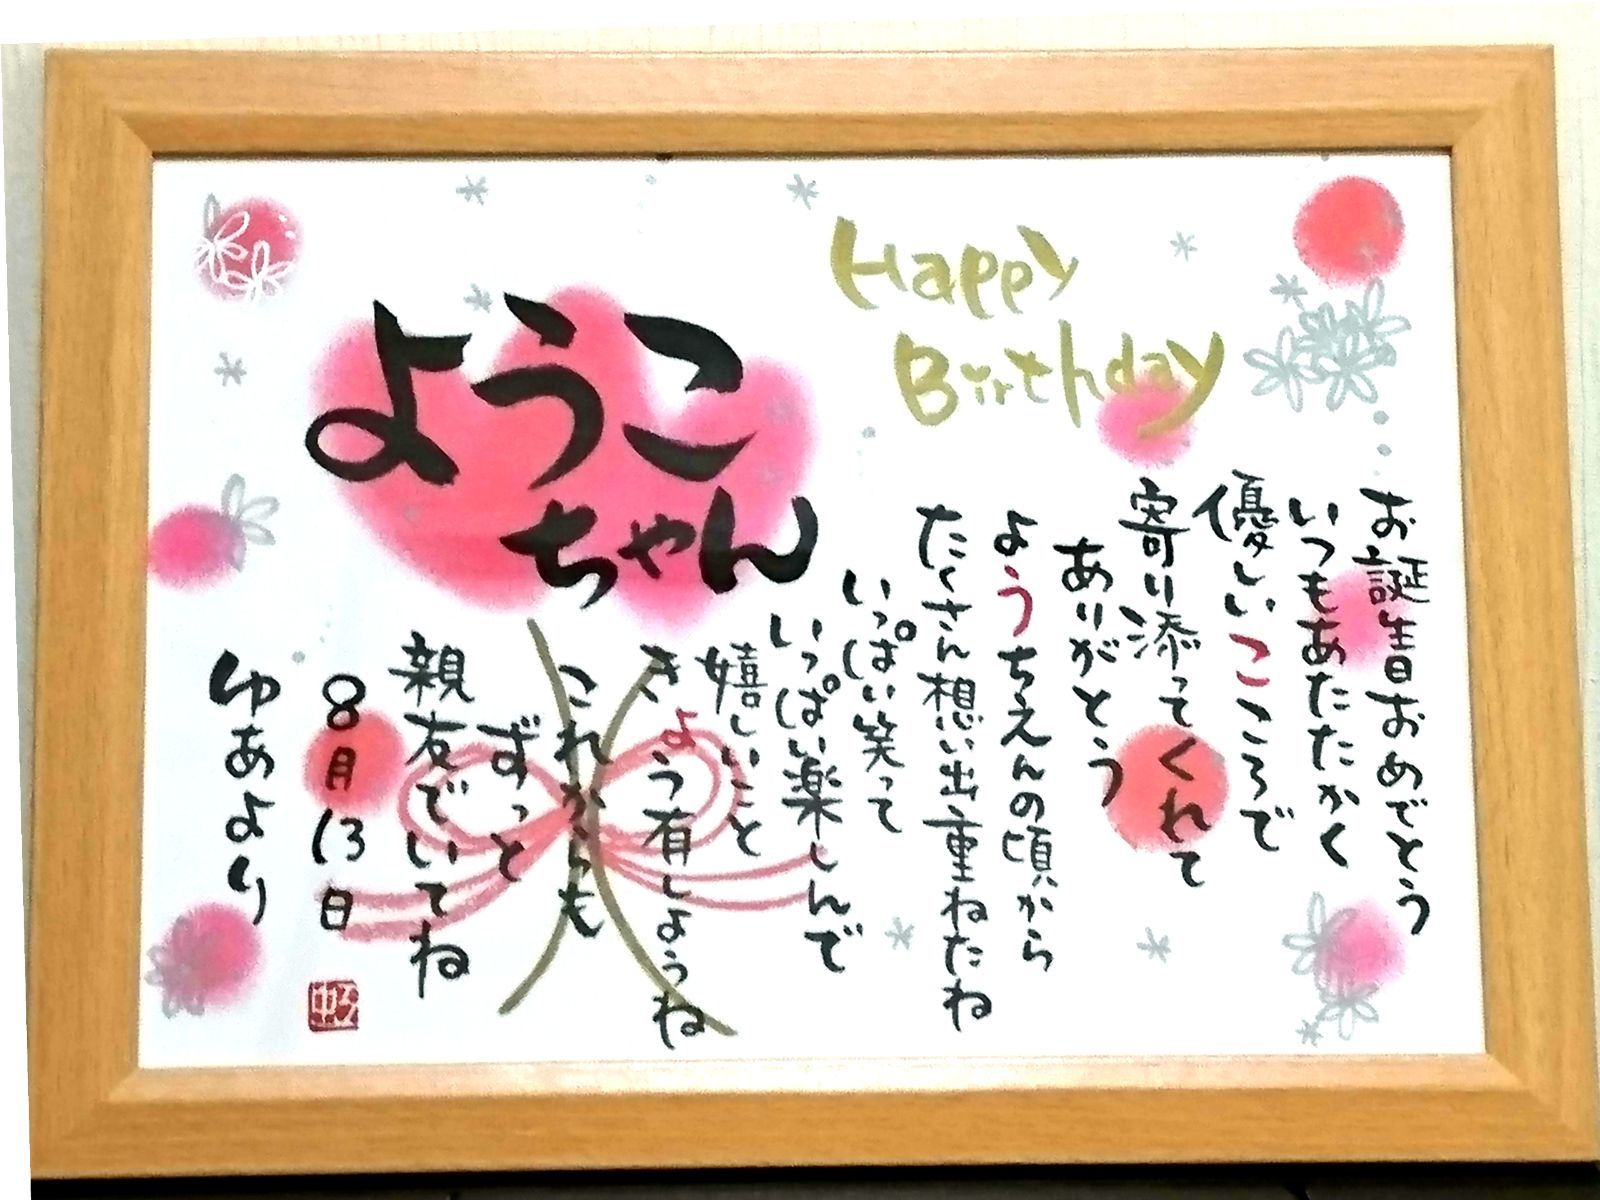 Happy
Birthday
ようこ
ちゃん
お誕生日おめでとう
いつもあたたかく
優しいこころで
寄り添ってくれて
ありがとう
ようちえんの頃から
たくさん想い出重ねたね
いっぱい笑って
いっぱい楽しんで
嬉しいこと
きょう有しようね
これからも
ずっと
親友でいてね
8月13日
ゆあより
虹